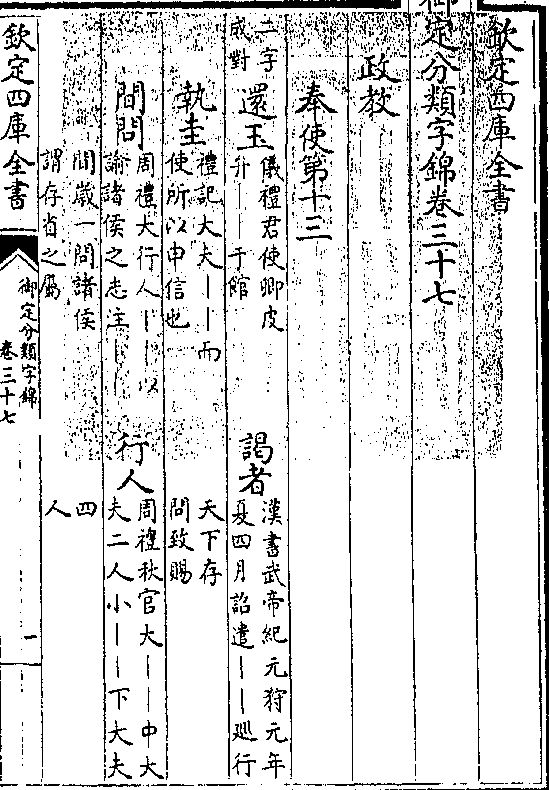 欽定四庫全書
御定分類字錦卷三十七
政教
奉使第十三
二字
成對
還玉
儀禮君使卿皮
弁丨丨于館
謁者
漢書武帝紀元狩元年
夏四月詔遣丨丨廵行
天下存
問致賜
執圭
禮記大夫丨丨而
使所以申信也
間問
周禮大行人丨丨以
諭諸侯之志注丨丨
間歲一問諸侯
謂存省之屬
行人
周禮秋官大丨丨中大
夫二人小丨丨下大夫
四
人
欽定四庫全書
御定分類字錦
卷三十七
一